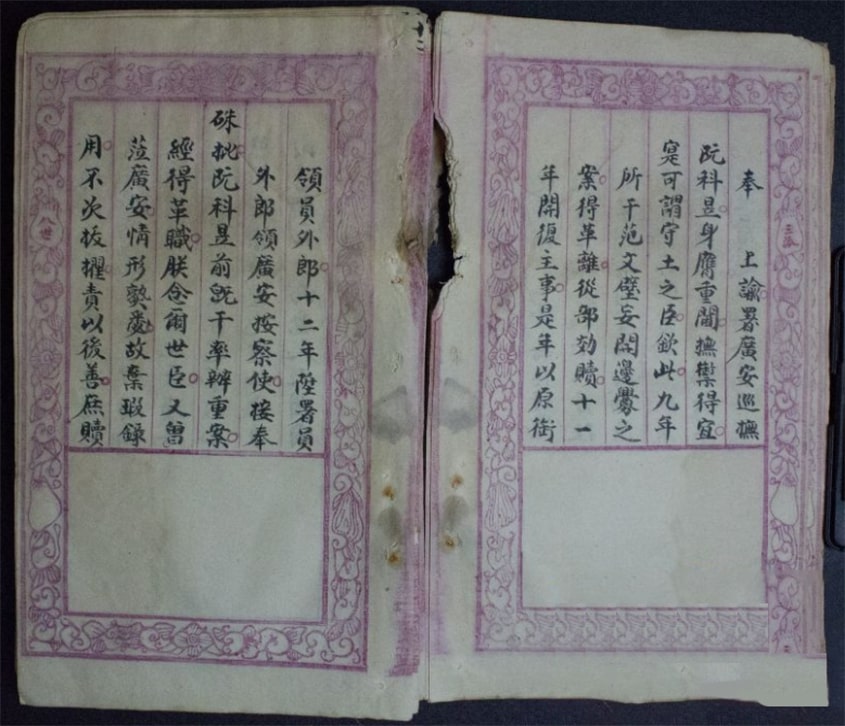 奉　上諭署廣安巡撫
阮科昱身膺重閫撫禦得宜
寔可謂守土之臣欽此九年
所干范文璧妄開邊釁之
案得革離從部効贖十一
年開復主事是年以原銜
三派
領員外郎十二年陞署員
外郎領廣安按察使接奉
硃批阮科昱前旣干率辦重案
經得革職朕念爾世臣又曾
蒞廣安情形熟悉故棄瑕錄
用不次拔擢責以後善庶贖
八世